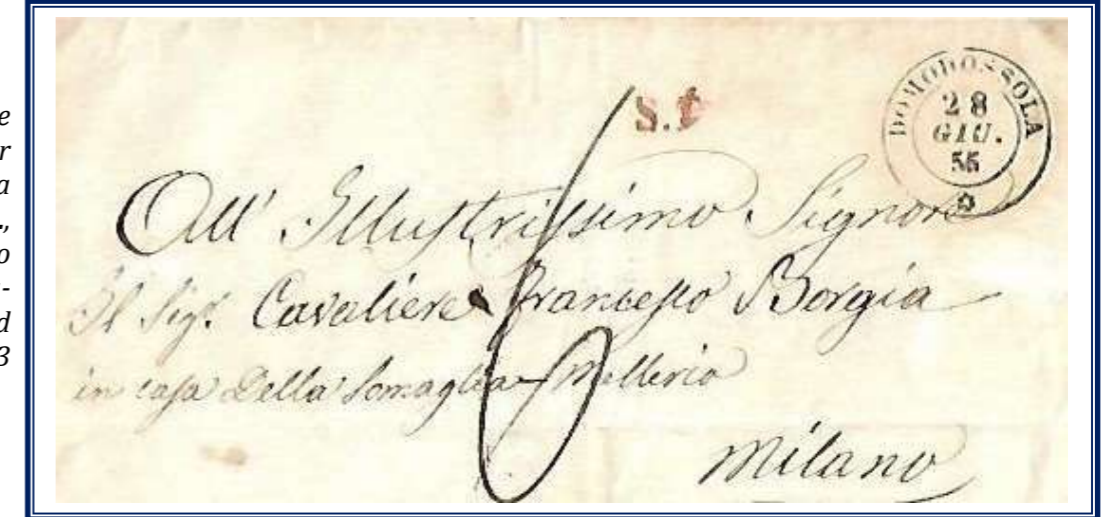 e
r
a
.,
o
-
d
3
S.
DOMODOSSOLA
28
GIU.
55
All' Illustrissimo Signore
Il Sigr. Cavaliere Francesco Borgia
in casa Della Somaglia Mellerio
Milano
6